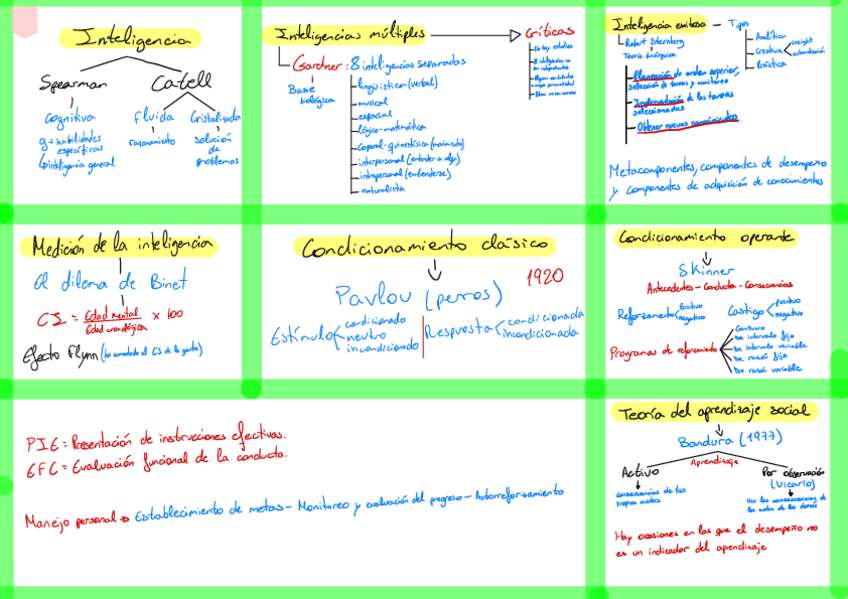 Inteligencia
Spearman
Catell
Cognitiva
g + habilidades
específicas
inteligencia general
Fluida
razonamiento
Cristalizada
solución
de
problemas
Inteligencias múltiples
Gardner: 8 inteligencias separadas
Base
biológica
lingüística (verbal)
musical
espacial
lógico-matemática
corporal-quinestésica (movimiento)
interpersonal (entender a algn)
intrapersonal (entenderse)
naturalista
Críticas
No hay estudios
Inteligencia exitosa - Tipos
Robert Sternberg
Teoría triárquica
Analítica
Creativa
insight
automatización
Práctica
Planeación de orden superior,
selección de tareas y monitoreo
de las tareas
seleccionadas
Obtener nuevos conocimientos
Metacomponentes, componentes de desempeño
y componentes de adquisición de conocimientos
Medición de la inteligencia
El dilema de Binet
CI = Edad mental / Edad cronológica x 100
Efecto Flynn (ha aumentado el CI de la gente)
Condicionamiento clásico
1920
Pavlov (perros)
Estímulo
condicionado
neutro
incondicionado
Respuesta
condicionada
incondicionada
Condicionamiento operante
Skinner
Antecedentes - Conducta - Consecuencias
Reforzamiento
positivo
negativo
Castigo
positivo
negativo
Programas de reforzamiento
Continuo
De intervalo fijo
De intervalo variable
De razón fija
De razón variable
PIE = Presentación de instrucciones efectivas.
EFC = Evaluación funcional de la conducta.
Manejo personal → Establecimiento de metas - Monitoreo y evaluación del progreso - Autorreforzamiento
Teoría del aprendizaje social
Bandura (1977)
Aprendizaje
Activo
consecuencias de tus
propios actos
Por observación
(Vicario)
Ves las consecuencias de
los actos de los demás
Hay ocasiones en las que el desempeño no
es un indicador del aprendizaje